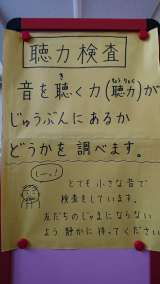 聴力検査
音を聴く力(聴力)が
じゅうぶんにあるか
どうかを調べます。
しーっ!
とても小さな音で
検査をしています。
友だちのじゃまにならない
よう静かに待ってください